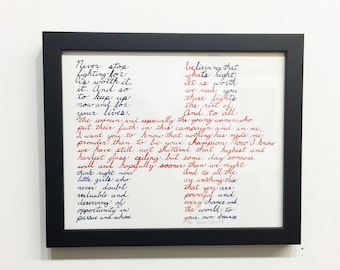 Never stop believing that
fighting for what's right
is worth it. It is worth
it. And so we need you
to keep up these fights
now and for the rest of
your lives. And to all
the women, and especially the young women who
put their faith in this campaign and in me,
I want you to know that nothing has made me
prouder than to be your champion. Now I know
we have still not shattered that highest and
hardest glass ceiling, but some day someone
will and hopefully sooner than we might
think right now. And to all the
little girls who are watching this
never doubt that you are
valuable and powerful and
deserving of every chance and
opportunity in the world to
pursue and achieve your own dreams